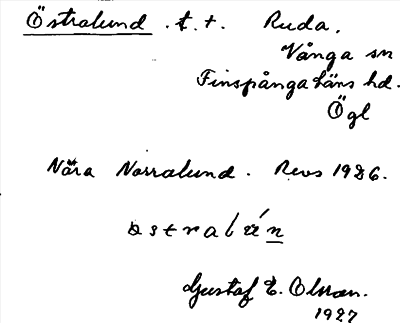 Östralund . t. t. Ruda.
Vånga sn
Finspånga läns hd.
Ögl
Nära Norralund. Revs 1926.
östralún
Gustaf E. Olsson.
1927